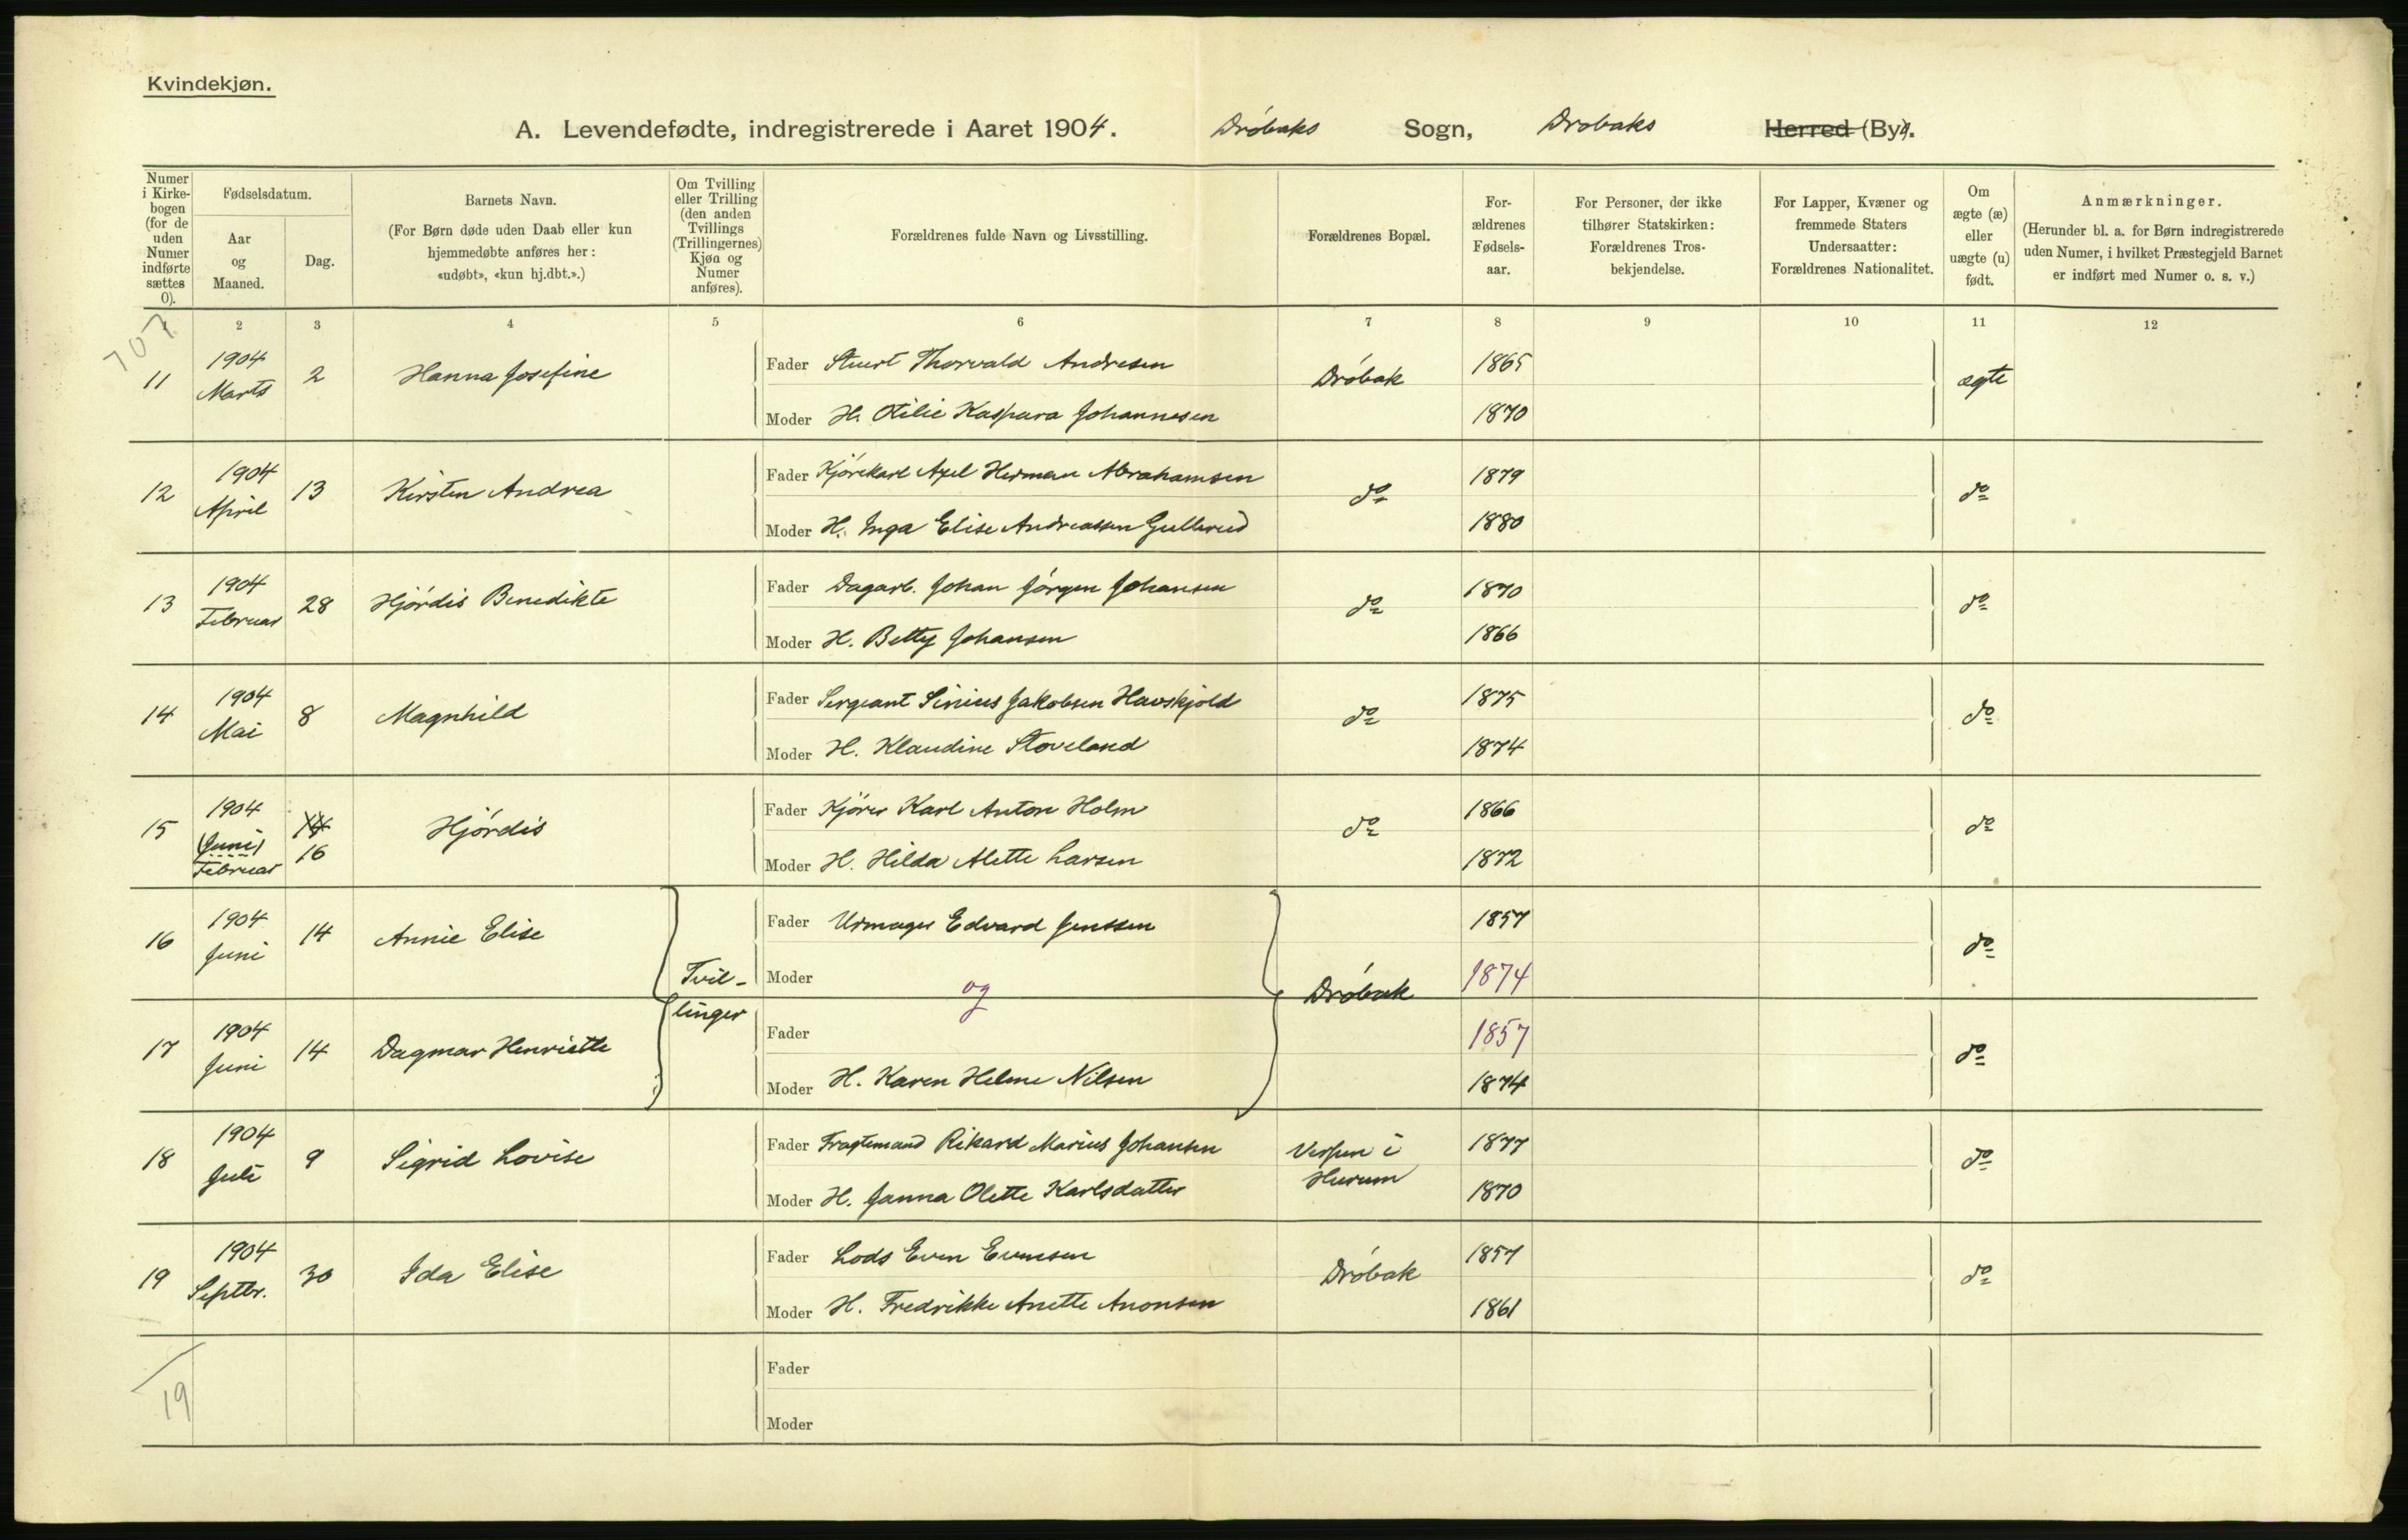 Kvindekjøn.
A. Levendefødte, indregistrerede i Aaret 1904. Drøbaks Sogn, Drøbaks Herred (By).
Numer i Kirkebogen (for de uden Numer indførte sættes 0).
Fødselsdatum.
Aar og Maaned.
Dag.
Barnets Navn.
(For Børn døde uden Daab eller kun hjemmedøbte anføres her: «udøbt», «kun hj.dbt.».)
Om Tvilling eller Trilling (den anden Tvillings (Trillingernes) Kjøn og Numer anføres).
Forældrenes fulde Navn og Livsstilling.
Forældrenes Bopæl.
Forældrenes Fødselsaar.
For Personer, der ikke tilhører Statskirken: Forældrenes Trosbekjendelse.
For Lapper, Kvæner og fremmede Staters Undersaatter: Forældrenes Nationalitet.
Om ægte (æ) eller uægte (u) født.
Anmærkninger.
(Herunder bl. a. for Børn indregistrerede uden Numer, i hvilket Præstegjeld Barnet er indført med Numer o. s. v.)
707
2 3 4 5 6 7 8 9 10 11 12
11 1904 Marts 2 Hanna Josefine
Fader Thorvald Andresen Drøbak 1865 ægte
Moder H. Otilie Kaspara Johannesen 1870
12 1904 April 13 Kirsten Andrea
Fader Kjørekarl Axel Herman Abrahamsen do 1879 do
Moder H. Inga Elise Andreassen Gullerud 1880
13 1904 Februar 28 Hjørdis Benedikte
Fader Dagarb. Johan Jørgen Johansen do 1870 do
Moder H. Betty Johansen 1866
14 1904 Mai 8 Magnhild
Fader Sergeant Sinius Jakobsen Havskjold do 1875 do
Moder H. Klaudine Stoveland 1874
15 1904 (Juni) Februar 14 16 Hjørdis
Fader Kjører Karl Anton Holm do 1866 do
Moder H. Hilda Alette Larsen 1872
16 1904 Juni 14 Annie Elise
Tvil-
Fader Urmager Edvard Jenssen 1857 do
Moder og Drøbak 1874
17 1904 Juni 14 Dagmar Henriette
linger
Fader 1857 do
Moder H. Karen Helene Nilsen 1874
18 1904 Juli 9 Sigrid Lovise
Fader Fragtemand Rikard Marius Johansen i Hurum 1877 do
Moder H. Janna Olette Karlsdatter 1870
19 1904 Septbr. 30 Ida Elise
Fader Lods Even Evensen Drøbak 1857 do
Moder H. Fredrikke Anette Anonsen 1861
19
Fader
Moder